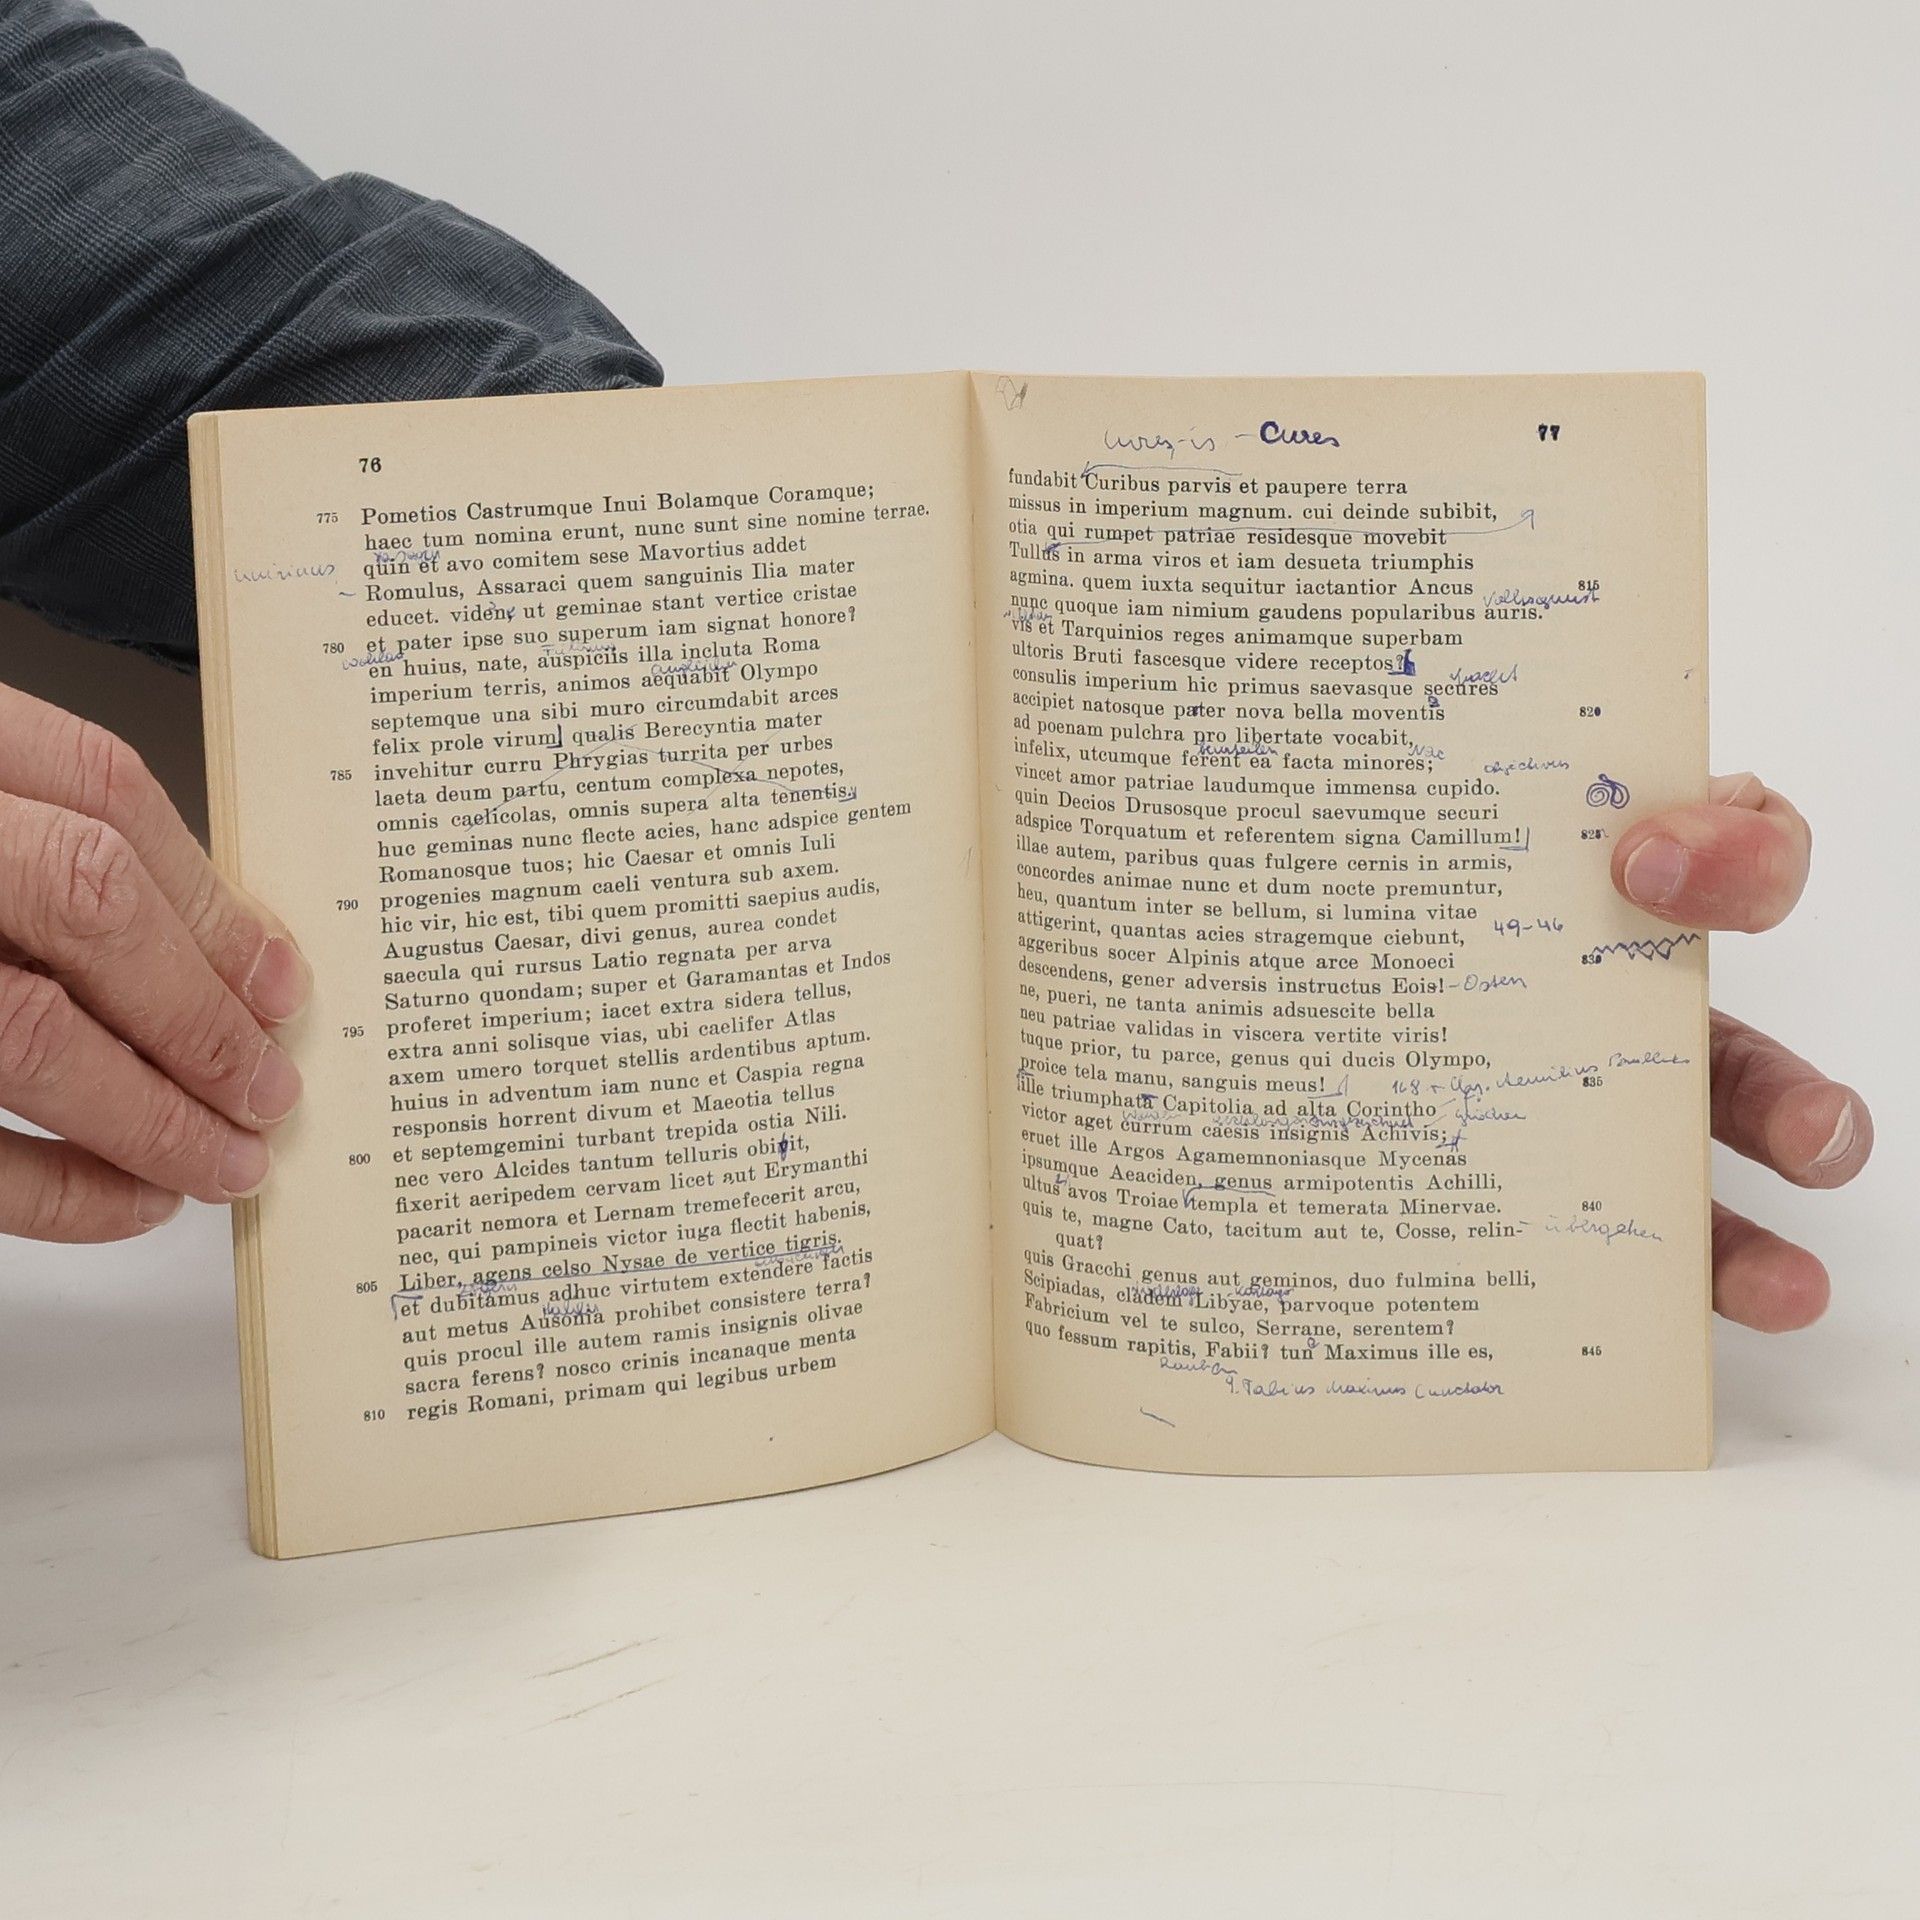 76
775 Pometios Castrumque Inui Bolamque Coramque;
haec tum nomina erunt, nunc sunt sine nomine terrae.
quin et avo comitem sese Mavortius addet
Romulus, Assaraci quem sanguinis Ilia mater
educet. viden, ut geminae stant vertice cristae
780 et pater ipse suo superum iam signat honore?
en huius, nate, auspiciis illa incluta Roma
imperium terris, animos aequabit Olympo
septemque una sibi muro circumdabit arces
felix prole virum] qualis Berecyntia mater
785 invehitur curru Phrygias turrita per urbes
laeta deum partu, centum complexa nepotes,
omnis caelicolas, omnis supera alta tenentis.
huc geminas nunc flecte acies, hanc adspice gentem
Romanosque tuos; hic Caesar et omnis Iuli
790 progenies magnum caeli ventura sub axem.
hic vir, hic est, tibi quem promitti saepius audis,
Augustus Caesar, divi genus, aurea condet
saecula qui rursus Latio regnata per arva
Saturno quondam; super et Garamantas et Indos
795 proferet imperium; iacet extra sidera tellus,
extra anni solisque vias, ubi caelifer Atlas
axem umero torquet stellis ardentibus aptum.
huius in adventum iam nunc et Caspia regna
responsis horrent divum et Maeotia tellus
800 et septemgemini turbant trepida ostia Nili.
nec vero Alcides tantum telluris obivit,
fixerit aeripedem cervam licet aut Erymanthi
pacarit nemora et Lernam tremefecerit arcu,
nec, qui pampineis victor iuga flectit habenis,
805 Liber, agens celso Nysae de vertice tigris.
et dubitamus adhuc virtutem extendere factis
aut metus Ausonia prohibet consistere terra?
quis procul ille autem ramis insignis olivae
sacra ferens? nosco crinis incanaque menta
810 regis Romani, primam qui legibus urbem
Cures, is - Cures
77
fundabit Curibus parvis et paupere terra
missus in imperium magnum. cui deinde subibit,
otia qui rumpet patriae residesque movebit
Tullus in arma viros et iam desueta triumphis
agmina. quem iuxta sequitur iactantior Ancus 815
nunc quoque iam nimium gaudens popularibus auris.
vis et Tarquinios reges animamque superbam
ultoris Bruti fascesque videre receptos?
consulis imperium hic primus saevasque secures
accipiet natosque pater nova bella moventis 820
ad poenam pulchra pro libertate vocabit,
infelix, utcumque ferent ea facta minores;
vincet amor patriae laudumque immensa cupido.
quin Decios Drusosque procul saevumque securi
adspice Torquatum et referentem signa Camillum! 825
illae autem, paribus quas fulgere cernis in armis,
concordes animae nunc et dum nocte premuntur,
heu, quantum inter se bellum, si lumina vitae
attigerint, quantas acies stragemque ciebunt, 49-46
aggeribus socer Alpinis atque arce Monoeci 830
descendens, gener adversis instructus Eois! - Osten
ne, pueri, ne tanta animis adsuescite bella
neu patriae validas in viscera vertite viris!
tuque prior, tu parce, genus qui ducis Olympo,
proice tela manu, sanguis meus! 835
ille triumphata Capitolia ad alta Corintho
victor aget currum caesis insignis Achivis;
eruet ille Argos Agamemnoniasque Mycenas
ipsumque Aeaciden, genus armipotentis Achilli,
ultus avos Troiae templa et temerata Minervae. 840
quis te, magne Cato, tacitum aut te, Cosse, relin- übergehen
quat?
quis Gracchi genus aut geminos, duo fulmina belli,
Scipiadas, cladem Libyae, parvoque potentem
Fabricium vel te sulco, Serrane, serentem?
quo fessum rapitis, Fabii? tun Maximus ille es, 845
Q. Fabius Maximus Cunctator